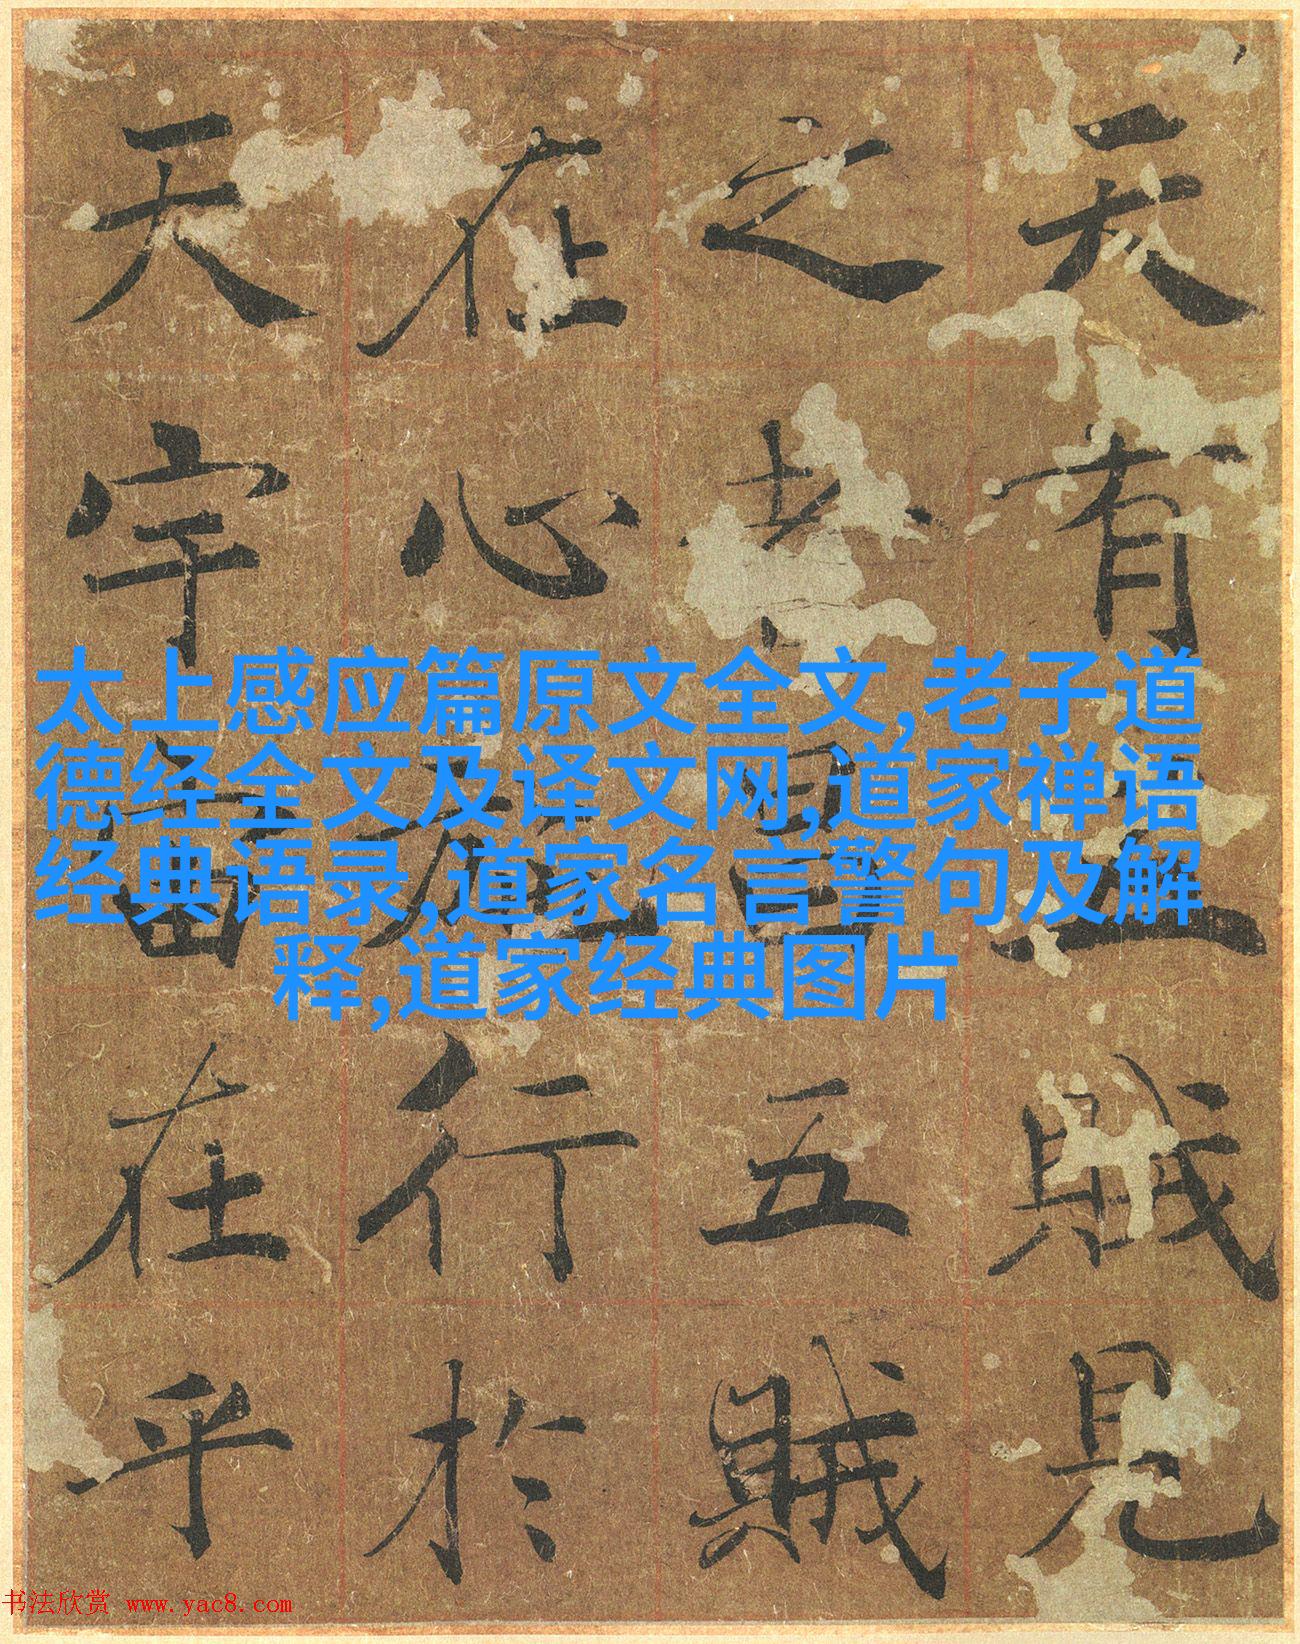 天有五賊見
之者昌五賊
在心施行於
天宇宙在乎
太上感应篇原文全文,老子道
德经全文及译文网,道家禅语
经典语录,道家名言警句及解
释,道家经典图片
书法欣赏 www.yac8.com